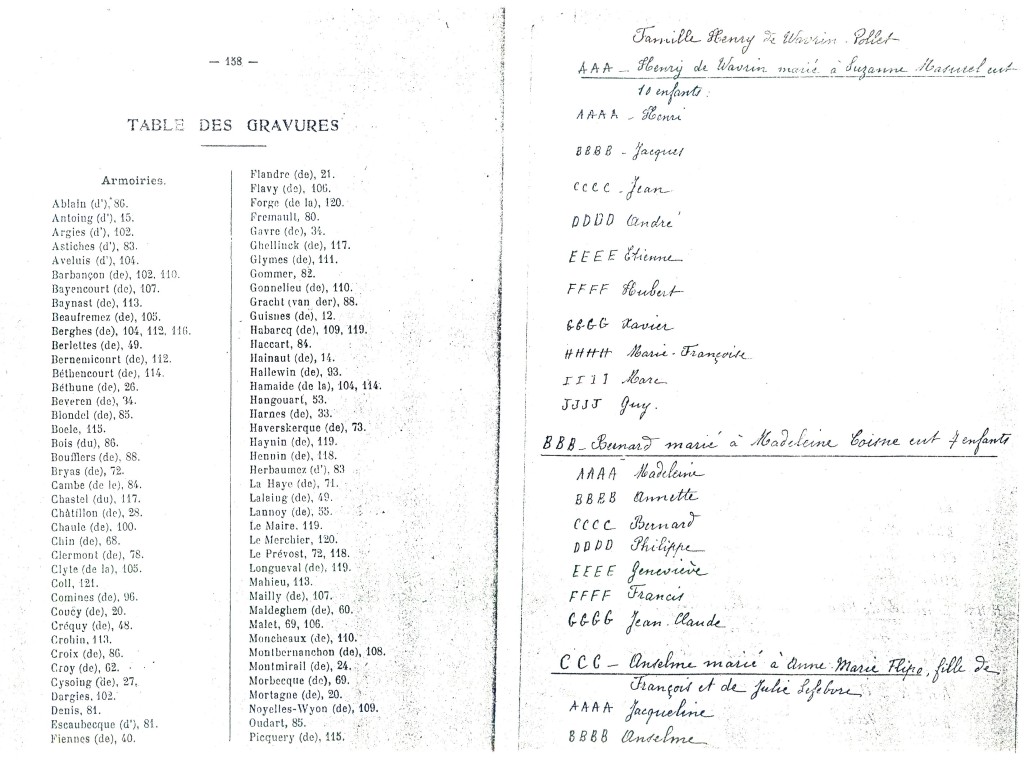 — 138 —
TABLE DES GRAVURES
Armoiries.
Ablain (d'), 86.
Antoing (d'), 15.
Argies (d'), 102.
Astiches (d'), 83.
Aveluis (d'), 104.
Barbançon (de), 102, 110.
Bayencourt (de), 107.
Baynast (de), 113.
Beaufremez (de), 105.
Berghes (de), 104, 112, 116.
Berlettes (de), 49.
Bernemicourt (de), 112.
Béthencourt (de), 114.
Béthune (de), 26.
Beveren (de), 34.
Blondel (de), 85.
Boele, 115.
Bois (du), 86.
Boufflers (de), 88.
Bryas (de), 72.
Cambe (de le), 84.
Chastel (du), 117.
Châtillon (de), 28.
Chaule (de), 100.
Chin (de), 68.
Clermont (de), 78.
Clyte (de la), 105.
Coll, 121.
Comines (de), 96.
Coucy (de), 20.
Créquy (de), 48.
Crohin, 113.
Croix (de), 86.
Croy (de), 62.
Cysoing (de), 27.
Dargies, 102.
Denis, 81.
Escaubecque (d'), 81.
Fiennes (de), 40.
Flandre (de), 21.
Flavy (de), 106.
Forge (de la), 120.
Fremault, 80.
Gavre (de), 34.
Ghellinck (de), 117.
Glymes (de), 111.
Gommer, 82.
Gonnelieu (de), 110.
Gracht (van der), 88.
Guisnes (de), 12.
Habarcq (de), 109, 119.
Haccart, 84.
Hainaut (de), 14.
Hallewin (de), 93.
Hamaide (de la), 104, 114.
Hangouart, 53.
Harnes (de), 33.
Haverskerque (de), 73.
Haynin (de), 119.
Hennin (de), 118.
Herbaumez (d'), 83
La Haye (de), 71.
Lalaing (de), 49.
Lannoy (de), 55.
Le Maire, 119.
Le Merchier, 120.
Le Prévost, 72, 118.
Longueval (de), 119.
Mahieu, 113.
Mailly (de), 107.
Maldeghem (de), 60.
Malet, 69, 106.
Moncheaux (de), 110.
Montbernanchon (de), 108.
Montmirail (de), 24.
Morbecque (de), 69.
Mortagne (de), 20.
Noyelles-Wyon (de), 109.
Oudart, 85.
Picquery (de), 115.
Famille Henry de Wavrin-Pollet
AAA – Henry de Wavrin marié à Suzanne Masurel eut
10 enfants:
AAAA – Henri
BBBB – Jacques
CCCC – Jean
DDDD André
EEEE Etienne
FFFF Hubert
GGGG Xavier
HHHH Marie-Françoise
IIII Marc
JJJJ Guy.
BBB – Bernard marié à Madeleine Toisne eut 7 enfants
AAAA Madeleine
BBBB Annette
CCCC Bernard
DDDD Philippe
EEEE Geneviève
FFFF Francis
GGGG Jean-Claude
CCC – Anselme marié à Anne Marie Flipo, fille de
François et de Julie Lefebvre
AAAA Jacqueline
BBBB Anselme